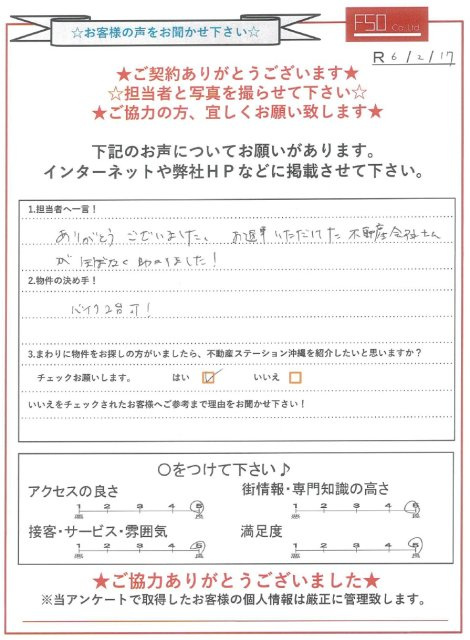 ☆お客様の声をお聞かせ下さい☆
FSO Co.,Ltd.
R6/2/17
★ご契約ありがとうございます★
☆担当者と写真を撮らせて下さい☆
★ご協力の方、宜しくお願い致します★
下記のお声についてお願いがあります。
インターネットや弊社HPなどに掲載させて下さい。
1.担当者へ一言！
ありがとうございました、お返事いただけた不動産会社さん
がほぼなく助かりました！
2.物件の決め手！
バイク2台可！
3.まわりに物件をお探しの方がいましたら、不動産ステーション沖縄を紹介したいと思いますか？
チェックお願いします。 はい ☑ いいえ □
いいえをチェックされたお客様へご参考まで理由をお聞かせ下さい！
〇をつけて下さい♪
アクセスの良さ 街情報・専門知識の高さ
1 2 3 4 5 1 2 3 4 5
悪 良 悪 良
接客・サービス・雰囲気 満足度
1 2 3 4 5 1 2 3 4 5
悪 良 悪 良
★ご協力ありがとうございました★
※当アンケートで取得したお客様の個人情報は厳正に管理致します。